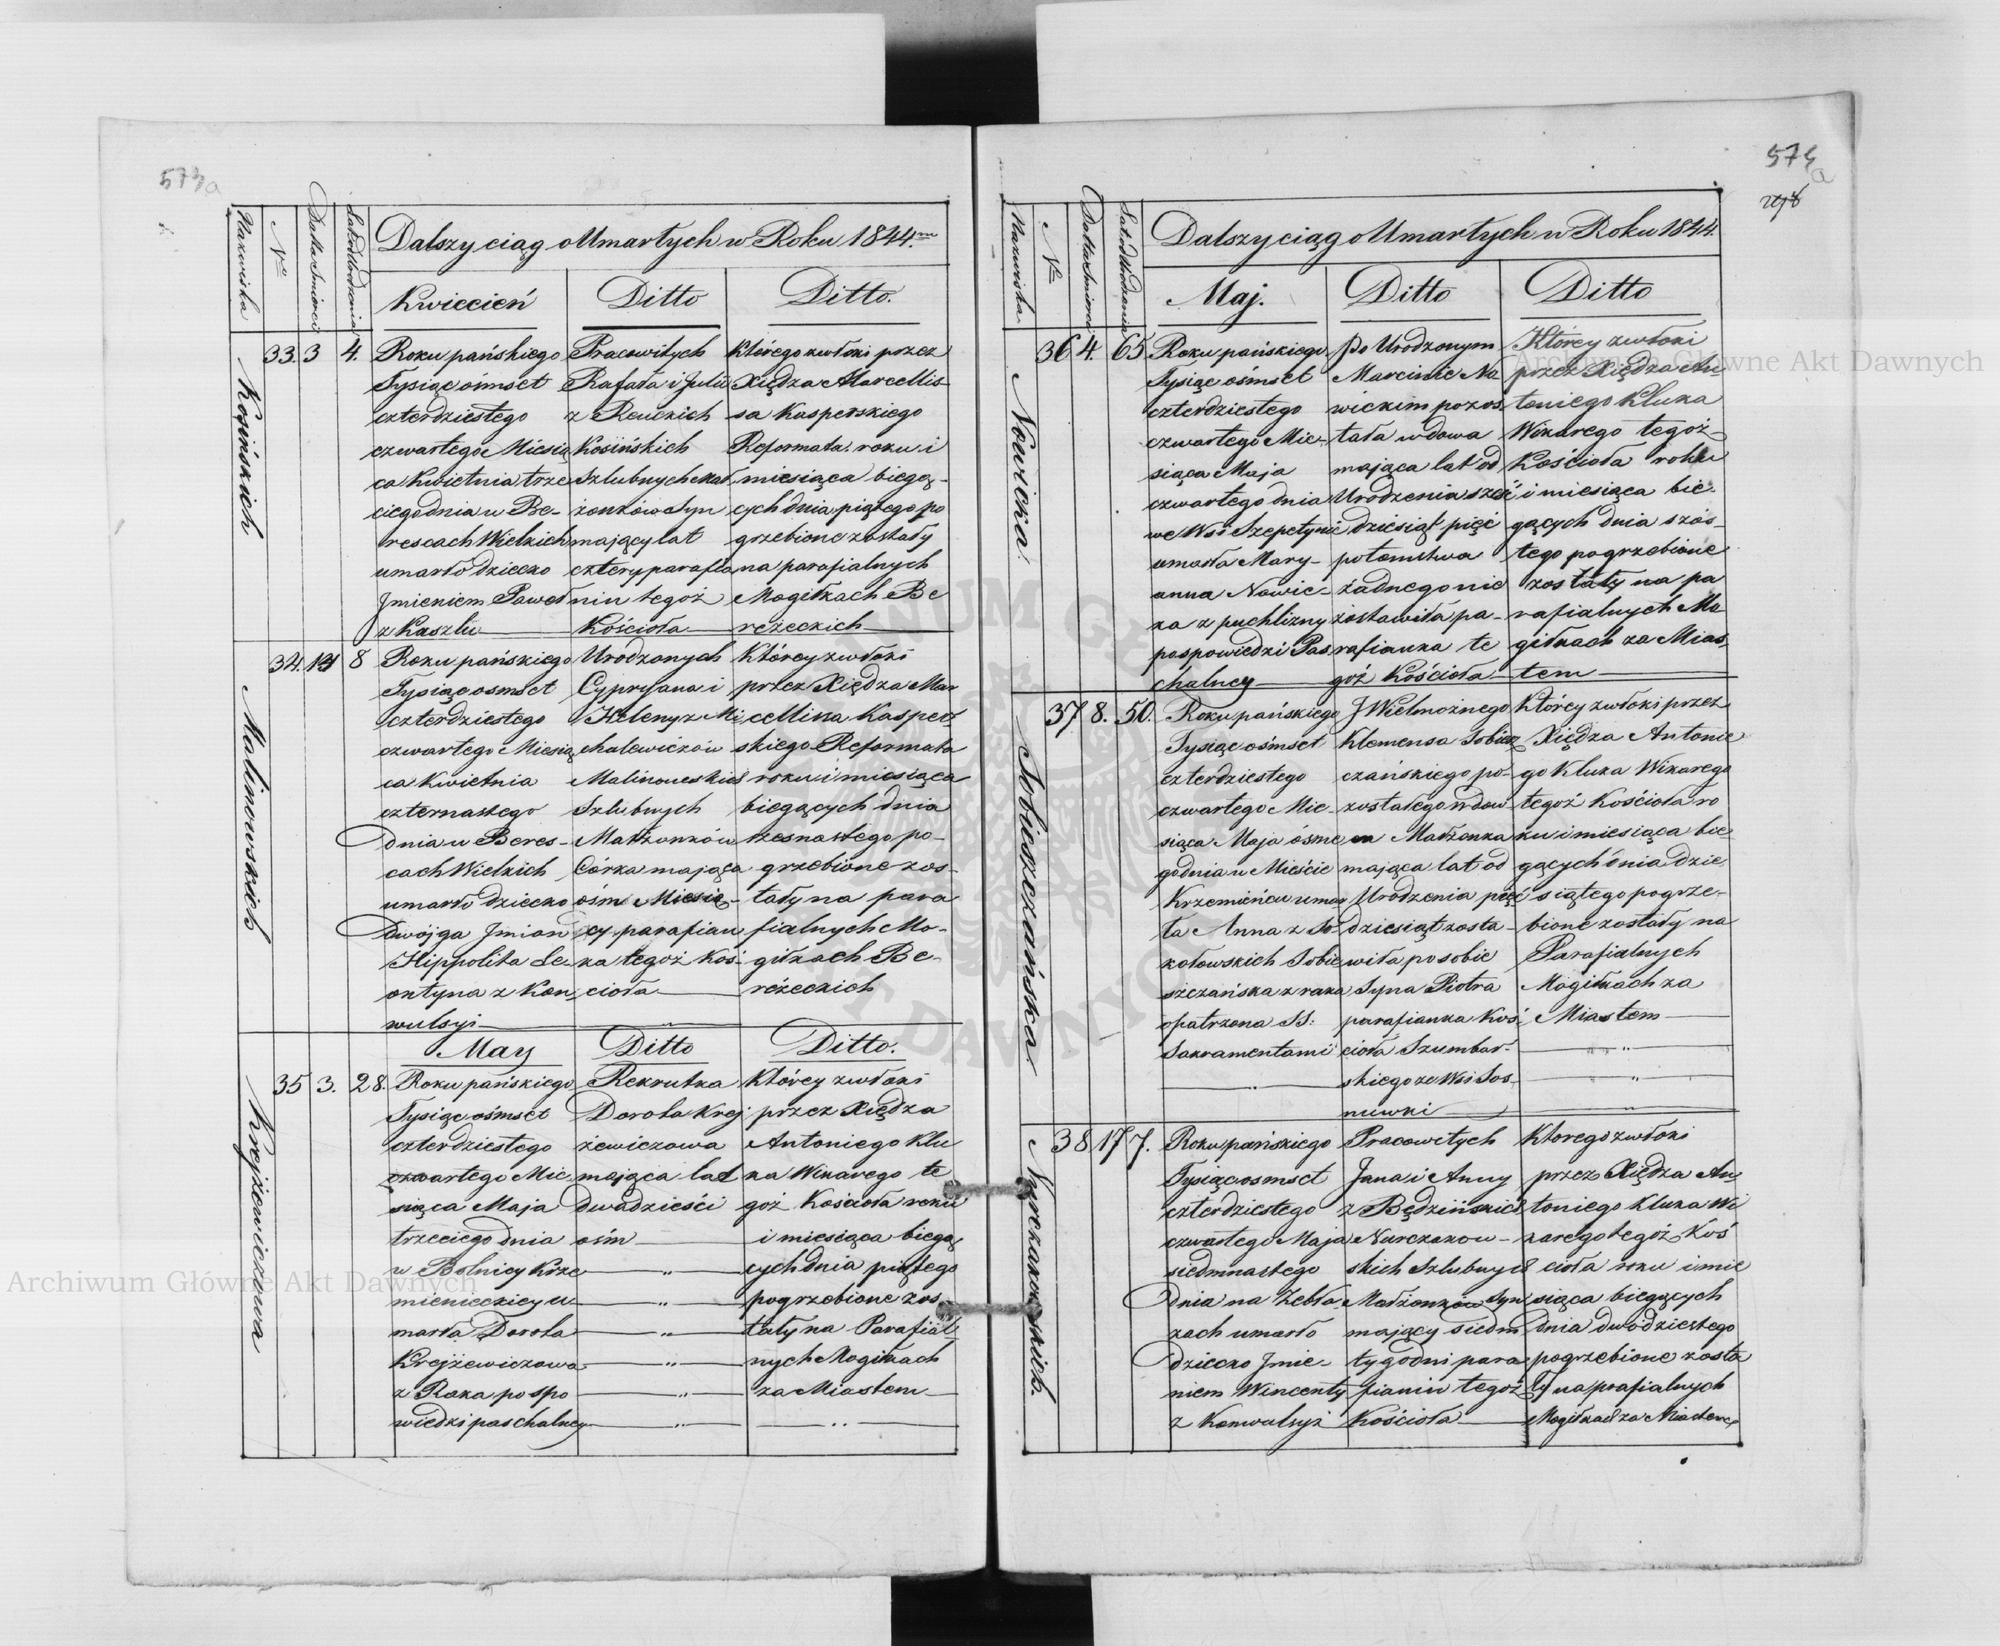 573a
Nazwiska
No
Datta Śmierci
Lat od Urodzenia
Dalszy ciąg o Umarłych w Roku 1844.
Kwiecień
Ditto
Ditto.
Kosińskich
33. 3 4.
Roku pańskiego
Tysiąc ośmset
czterdziestego
czwartego Miesią
ca Kwietnia trze
ciego dnia w Be-
rescach Wielkich
umarło dziecko
Jmieniem Paweł
z Kaszlu
Pracowitych
Rafała i Julii
z Reuckich
Kosińskich
Szlubnych Mał
żonków Syn
mający lat
cztery parafia
nin tegoż
Kościoła
Którego zwłoki przez
Xiędza Marcellis-
sa Kasperskiego
Reformata roku i
miesiąca biegą-
cych dnia piątego po
grzebione zostały
na parafialnych
Mogiłkach Be
reżeckich
Malinowskich
34. 14 8
Roku pańskiego
Tysiąc osmset
czterdziestego
czwartego Miesią
ca Kwietnia
czternastego
dnia w Beres-
cach Wielkich
umarło dziecko
Dwójga Jmion
Hippolita Le-
ontyna z Kon
wulsyi
Uródzonych
Cypryana i
Heleny z Mi
chalewiczów
Malinowskich
Szlubnych
Małżonków
Córka mająca
ośm Miesię-
cy parafian
ka tegoż Koś-
cioła
Którey zwłoki
przez Xiędza Mar
cellina Kasper
skiego Reformata
roku i miesiąca
biegących dnia
szesnastego po-
grzebione zos-
tały na para
fialnych Mo-
giłkach Be-
reżeckich
May
Ditto
Ditto.
Krejżewiczowa
35 3. 28.
Roku pańskiego
Tysiąc ośmset
czterdziestego
czwartego Mie
siąca Maja
trzeciego dnia
w Bolnicy Krze
mienieckiey u-
marła Dorota
Krejżewiczowa
z Raka po spo
wiedzi paschalney
Rekrutka
Dorota Krej
żewiczowa
mająca lat
dwadzieści
ośm
Którey zwłoki
przez Xiędza
Antoniego Klu
ka Wikarego te
goż Kościoła roku
i miesiąca biegą
cych dnia piątego
pogrzebione zos-
tały na Parafial-
nych Mogiłkach
za Miastem
574
a
Nazwiska
No
Datta Śmierci
Lat od Urodzenia
Dalszy ciąg o Umarłych w Roku 1844.
Maj.
Ditto
Ditto
Nowicka
36 4. 65
Roku pańskiego
Tysiąc ośmset
czterdziestego
czwartego Mie-
siąca Maja
czwartego dnia
we Wsi Szepetynie
umarła Mary-
anna Nowic-
ka z puchliny
po spowiedzi Pas
chalney
Po Urodzonym
Marcinie No
wickim pozos
tała wdowa
mająca lat od
Urodzenia sześć
dziesiąt pięć
potomstwa
żadnego nie
zostawiła pa-
rafianka te
goż Kościoła
Którey zwłoki
przez Xiędza An-
toniego Kluka
Wikarego tegoż
Kościoła roku
i miesiąca bie-
gących dnia szós-
tego pogrzebione
zostały na pa
rafialnych Mo
giłkach za Mias
tem
Sobieszczańska
37 8. 50.
Roku pańskiego
Tysiąc ośmset
czterdziestego
czwartego Mie-
siąca Maja ósme
go dnia w Mieście
Krzemieńcu umar
ła Anna z So
kołowskich Sobie
szczańska z raka
opatrzona SS:
Sakramentami
J Wielmożnego
Klemensa Sobiesz
czańskiego po-
zostałego wdow
ca Małżonka
mająca lat od
Urodzenia pięć
dziesiąt zosta-
wiła po sobie
Syna Piotra
parafianka Koś-
cioła Szumbar-
skiego ze Wsi Sos-
nuwki
Którey zwłoki przez
Xiędza Antonie
go Kluka Wikarego
tegoż Kościoła ro
ku i miesiąca bie
gących dnia dzie
siątego pogrze-
bione zostały na
Parafialnych
Mogiłkach za
Miastem
38 17 7.
Roku pańskiego
Tysiąc osmset
czterdziestego
czwartego Maja
siedmnastego
Dnia na Zebła
zach umarło
Dziecko Jmie-
niem Wincenty
z Konwulsyi
Pracowitych
Jana i Anny
z Będzińskich
Narczakow-
skich Szlubnych
Małżonków Syn
mający siedm
tygodni para
fianin tegoż
Kościoła
Ktorego zwłoki
przez Xiędza An
toniego Kluka Wi
karego tegoż Koś
cioła roku i mie
siąca biegących
dnia dwódziestego
pogrzebione zosta
ły na prafialnych
Mogiłkach za Miastem
Archiwum Główne Akt Dawnych
Archiwum Główne Akt Dawnych